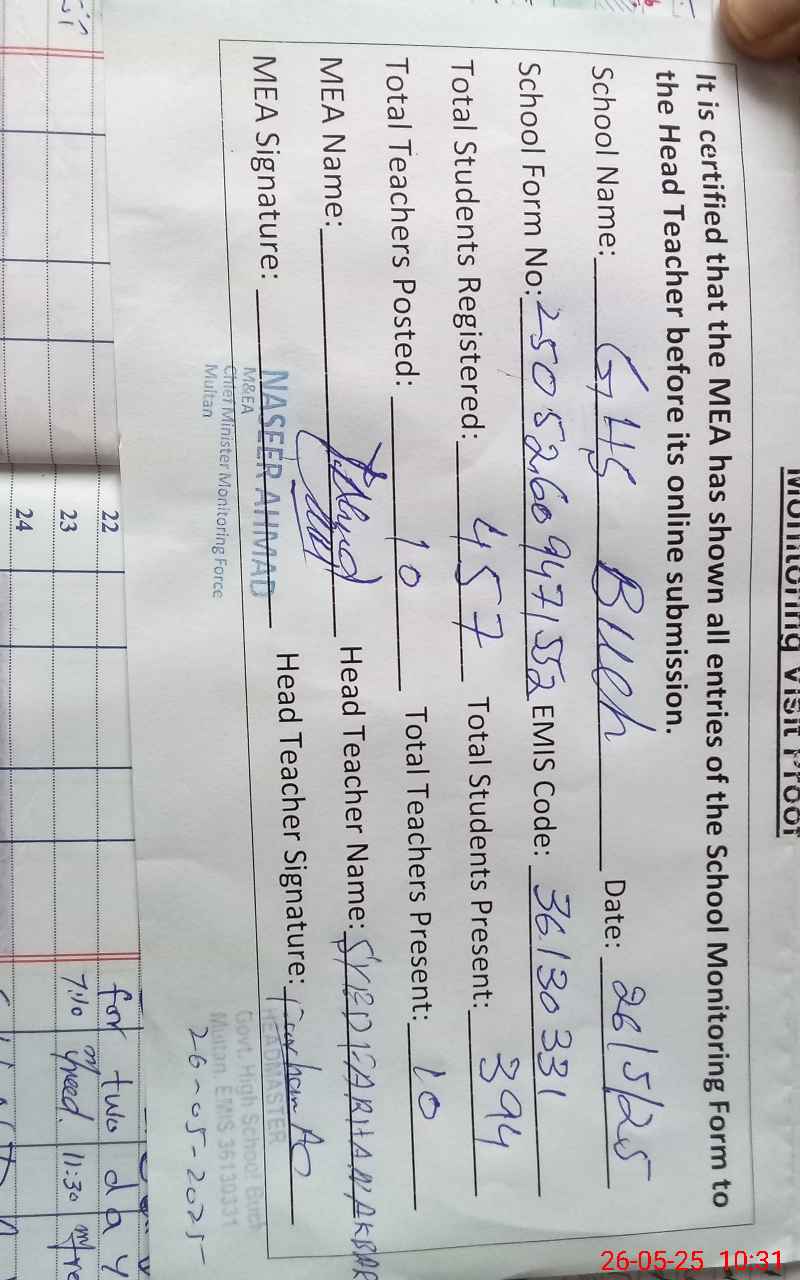 Monitoring Visit Proof
It is certified that the MEA has shown all entries of the School Monitoring Form to
the Head Teacher before its online submission.
School Name: GHS Buch Date: 26/5/25
School Form No: 250526609471552 EMIS Code: 36130331
Total Students Registered: 457 Total Students Present: 394
Total Teachers Posted: 10 Total Teachers Present: 10
MEA Name: Head Teacher Name: SYED FARHAN AKBAR
MEA Signature: Head Teacher Signature:
NASEER AHMAD
M&EA
Chief Minister Monitoring Force
Multan
HEADMASTER
Govt. High School Buch
Multan, EMIS 36130331
26-05-2025
22 for two day
23 7:10 11:30
24
26-05-25 10:31